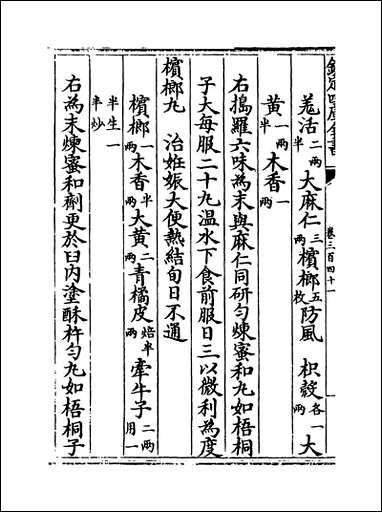 欽定四庫全書
卷三百四十一
羌活二兩半大麻仁三兩檳榔五枚防風 枳殼各一兩大
黄一兩半木香一兩
右搗羅六味為末與麻仁同研勻煉蜜和丸如梧桐
子大每服二十丸温水下食前服日三以微利為度
檳榔丸 治姙娠大便熱結旬日不通
檳榔一兩木香半兩大黄二兩青橘皮焙半兩牽牛子二兩用一
半生一半炒
右為末煉蜜和劑更於臼内塗酥杵勻丸如梧桐子